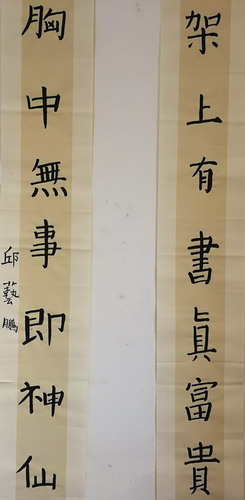 架上有書真富貴
胸中無事即神仙
邱藝鵬